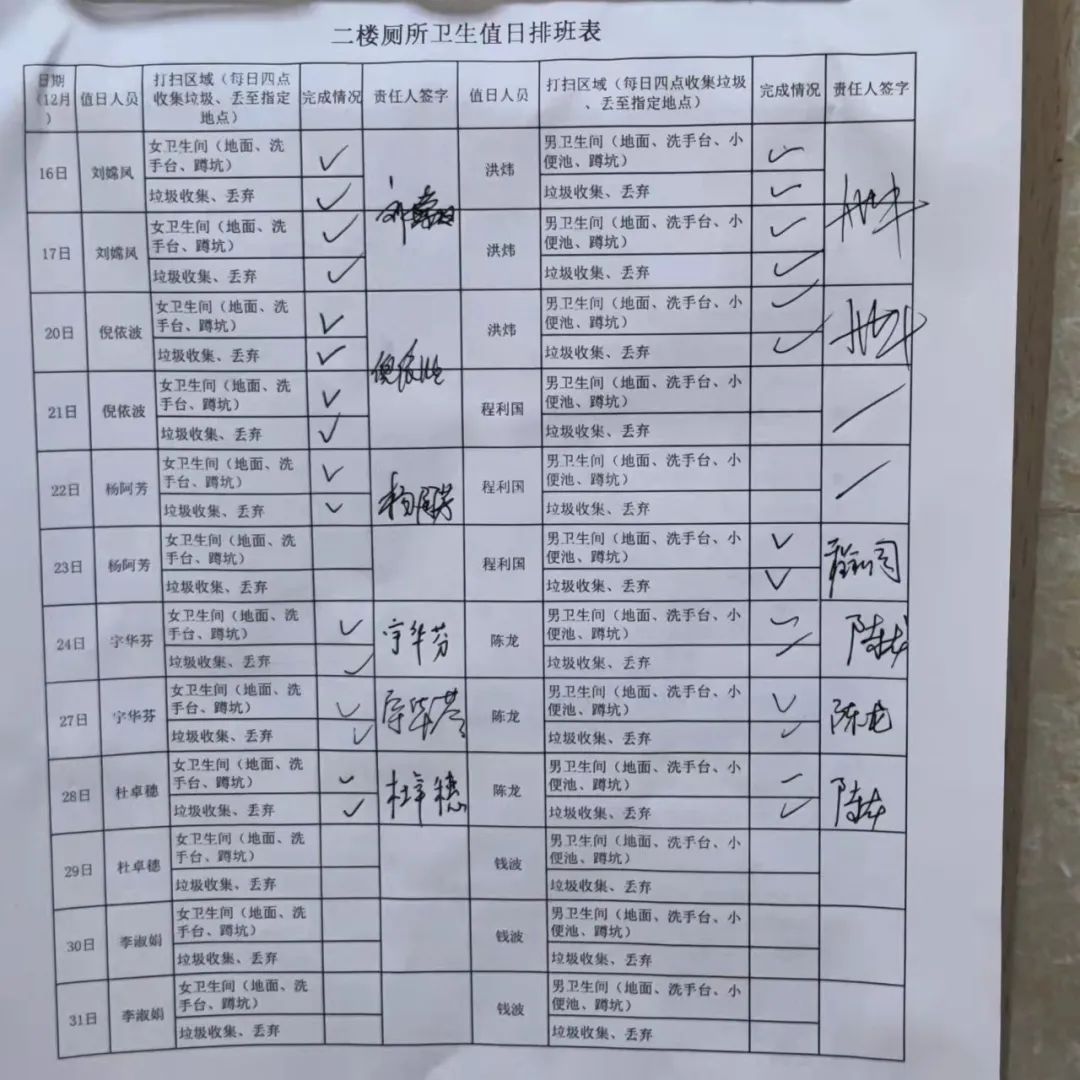 二楼厕所卫生值日排班表
日期（12月） 值日人员 打扫区域（每日四点收集垃圾、丢至指定地点） 完成情况 责任人签字 值日人员 打扫区域（每日四点收集垃圾、丢至指定地点） 完成情况 责任人签字
16日 刘嫦凤 女卫生间（地面、洗手台、蹲坑） ✓ 洪炜 男卫生间（地面、洗手台、小便池、蹲坑） ✓
垃圾收集、丢弃 ✓ 垃圾收集、丢弃 ✓
17日 刘嫦凤 女卫生间（地面、洗手台、蹲坑） ✓ 洪炜 男卫生间（地面、洗手台、小便池、蹲坑） ✓
垃圾收集、丢弃 ✓ 垃圾收集、丢弃 ✓
20日 倪依波 女卫生间（地面、洗手台、蹲坑） ✓ 倪依波 洪炜 男卫生间（地面、洗手台、小便池、蹲坑） ✓
垃圾收集、丢弃 ✓ 垃圾收集、丢弃 ✓
21日 倪依波 女卫生间（地面、洗手台、蹲坑） ✓ 程利国 男卫生间（地面、洗手台、小便池、蹲坑）
垃圾收集、丢弃 ✓ 垃圾收集、丢弃
22日 杨阿芳 女卫生间（地面、洗手台、蹲坑） ✓ 杨阿芳 程利国 男卫生间（地面、洗手台、小便池、蹲坑）
垃圾收集、丢弃 ✓ 垃圾收集、丢弃
23日 杨阿芳 女卫生间（地面、洗手台、蹲坑） 程利国 男卫生间（地面、洗手台、小便池、蹲坑） ✓ 程利国
垃圾收集、丢弃 垃圾收集、丢弃 ✓
24日 字华芬 女卫生间（地面、洗手台、蹲坑） ✓ 字华芬 陈龙 男卫生间（地面、洗手台、小便池、蹲坑） ✓ 陈龙
垃圾收集、丢弃 ✓ 垃圾收集、丢弃 ✓
27日 字华芬 女卫生间（地面、洗手台、蹲坑） ✓ 字华芬 陈龙 男卫生间（地面、洗手台、小便池、蹲坑） ✓ 陈龙
垃圾收集、丢弃 ✓ 垃圾收集、丢弃 ✓
28日 杜卓穗 女卫生间（地面、洗手台、蹲坑） ✓ 杜卓穗 陈龙 男卫生间（地面、洗手台、小便池、蹲坑） ✓ 陈龙
垃圾收集、丢弃 ✓ 垃圾收集、丢弃 ✓
29日 杜卓穗 女卫生间（地面、洗手台、蹲坑） 钱波 男卫生间（地面、洗手台、小便池、蹲坑）
垃圾收集、丢弃 垃圾收集、丢弃
30日 李淑娟 女卫生间（地面、洗手台、蹲坑） 钱波 男卫生间（地面、洗手台、小便池、蹲坑）
垃圾收集、丢弃 垃圾收集、丢弃
31日 李淑娟 女卫生间（地面、洗手台、蹲坑） 钱波 男卫生间（地面、洗手台、小便池、蹲坑）
垃圾收集、丢弃 垃圾收集、丢弃